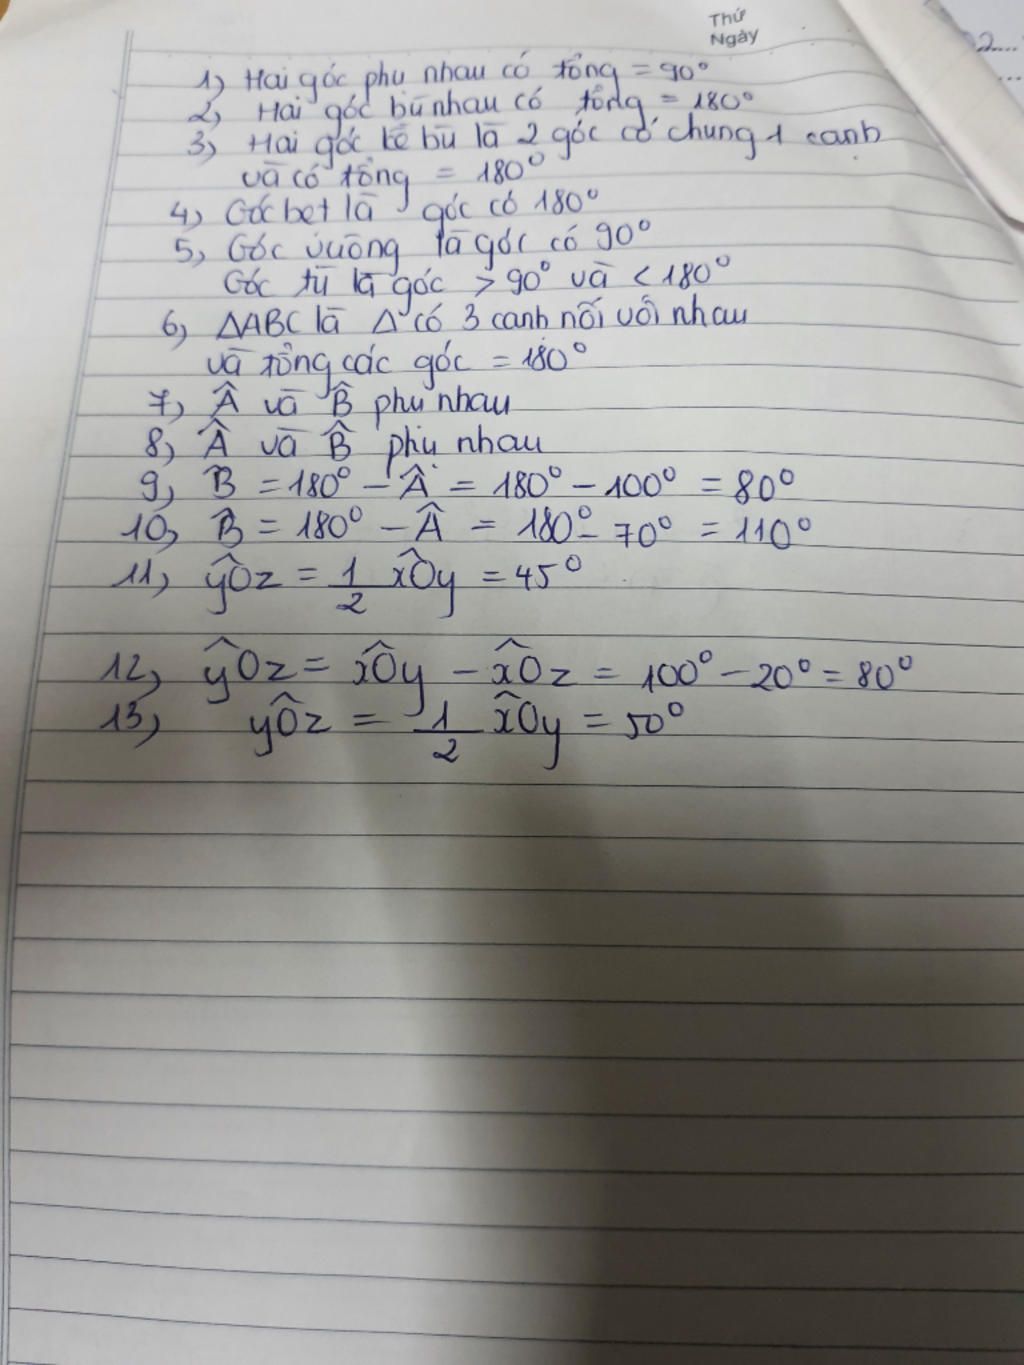 Thứ
Ngày
1) Hai góc phụ nhau có tổng = 90°
2) Hai góc bù nhau có tổng = 180°
3) Hai góc kề bù là 2 góc có chung 1 cạnh
và có tổng = 180°
4) Góc bẹt là góc có 180°
5) Góc vuông là góc có 90°
Góc tù là góc > 90° và < 180°
6) ΔABC là Δ có 3 cạnh nối với nhau
và tổng các góc = 180°
7) Â và B̂ phụ nhau
8) Â và B̂ phụ nhau
9) B̂ = 180° - Â = 180° - 100° = 80°
10) B̂ = 180° - Â = 180° - 70° = 110°
11) yÔz = 1/2 xÔy = 45°
12) yÔz = xÔy - xÔz = 100° - 20° = 80°
13) yÔz = 1/2 xÔy = 50°